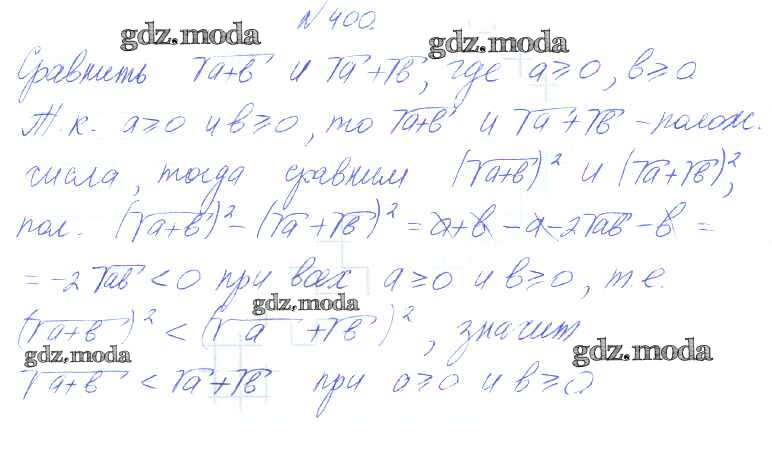 №400.
gdz.moda gdz.moda
Сравнить √a+в и √a+√в, где a≥0, в≥0
Т.к. a≥0 и в≥0, то √a+в и √a+√в - полож.
числа, тогда сравним (√a+в)² и (√a+√в)²,
пол. (√a+в)² - (√a+√в)² = a+в - a - 2√aв - в =
= -2√aв < 0 при всех a≥0 и в≥0, т.е.
gdz.moda
(√a+в)² < (√a+√в)², значит
gdz.moda gdz.moda
√a+в < √a+√в при a≥0 и в≥0